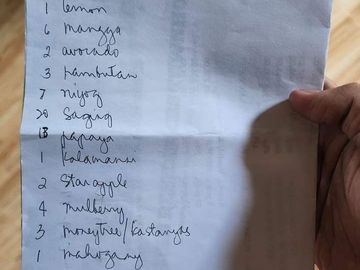 1 lemon
6 mangga
2 avocado
3 rambutan
7 niyog
20 Saging
13 papaya
1 kalamansi
2 Star apple
4 mulberry
3 moneytree/kastanyas
1 mahogany